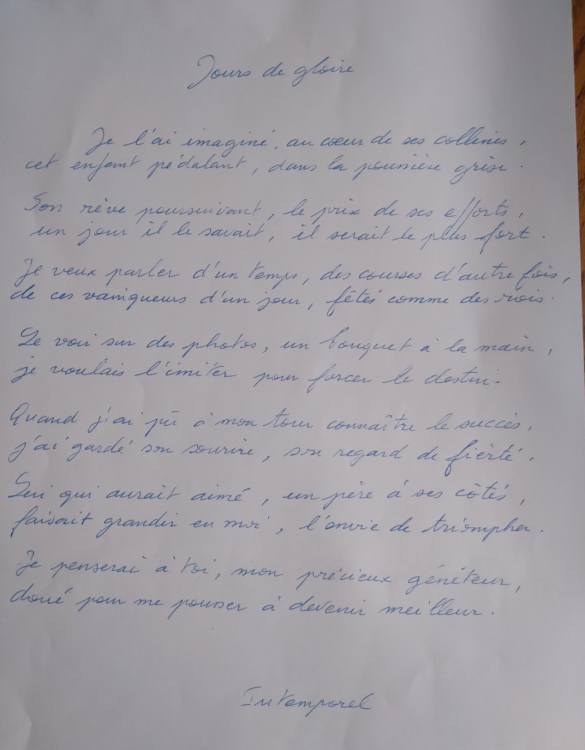 Jours de gloire
Je l'ai imaginé, au cœur de ses collines,
cet enfant pédalant, dans la poussière grise.
Son rêve poursuivant, le prix de ses efforts,
un jour il le savait, il serait le plus fort.
Je veux parler d'un temps, des courses d'autre fois,
de ces vainqueurs d'un jour, fêtés comme des rois.
Le voir sur des photos, un bouquet à la main,
je voulais l'imiter pour forcer le destin.
Quand j'ai pû à mon tour connaître le succès,
j'ai gardé son sourire, son regard de fierté.
Lui qui aurait aimé, un père à ses côtés,
faisait grandir en moi, l'envie de triompher.
Je penserai à toi, mon précieux géniteur,
doué pour me pousser à devenir meilleur.
Intemporel